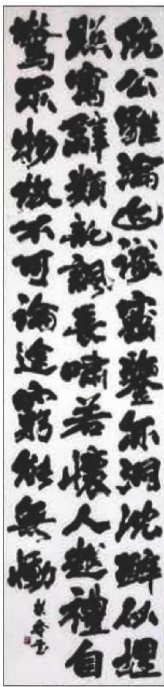 阮公雖淪跡識密鑒亦洞沈醉似埋
照寓辭類託諷長嘯若懷人越禮自
驚眾物故不可論途窮能無慟